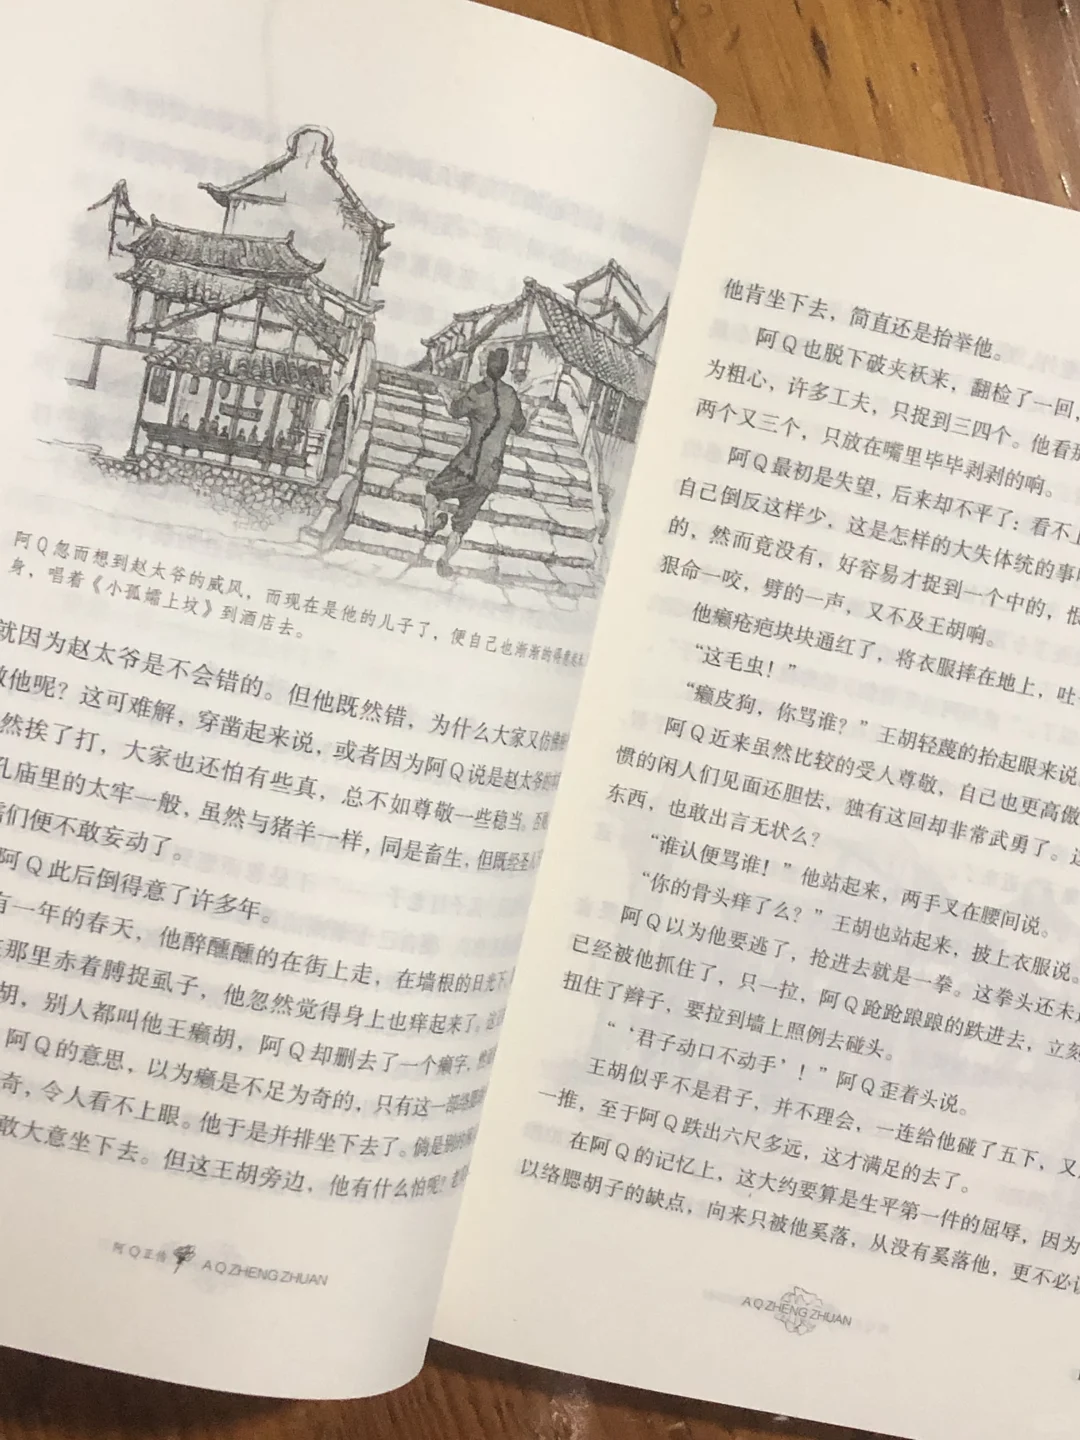 阿Q忽而想到赵太爷的威风，而现在是他的儿子了，便自己也渐渐的得意起来，
身，唱着《小孤孀上坟》到酒店去。
就因为赵太爷是不会错的。但他既然错，为什么大家又仿佛
敬他呢？这可难解，穿凿起来说，或者因为阿Q说是赵太爷的
然挨了打，大家也还怕有些真，总不如尊敬一些稳当。否则
孔庙里的太牢一般，虽然与猪羊一样，同是畜生，但既经圣
儒们便不敢妄动了。
阿Q此后倒得意了许多年。
有一年的春天，他醉醺醺的在街上走，在墙根的日光下，
在那里赤着膊捉虱子，他忽然觉得身上也痒起来了。这
胡，别人都叫他王癞胡，阿Q却删去了一个癞字，
阿Q的意思，以为癞是不足为奇的，只有这一部
奇，令人看不上眼。他于是并排坐下去了。倘是别的
敢大意坐下去。但这王胡旁边，他有什么怕呢？老
阿Q正传 A Q ZHENG ZHUAN
他肯坐下去，简直还是抬举他。
阿Q也脱下破夹袄来，翻检了一回，
为粗心，许多工夫，只捉到三四个。他看那
两个又三个，只放在嘴里毕毕剥剥的响。
阿Q最初是失望，后来却不平了：看不上
自己倒反这样少，这是怎样的大失体统的事
的，然而竟没有，好容易才捉到一个中的，恨
狠命一咬，劈的一声，又不及王胡响。
他癞疮疤块块通红了，将衣服摔在地上，吐
“这毛虫！”
“癞皮狗，你骂谁？”王胡轻蔑的抬起眼来说
阿Q近来虽然比较的受人尊敬，自己也更高傲
惯的闲人们见面还胆怯，独有这回却非常武勇了。这
东西，也敢出言无状么？
“谁认便骂谁！”他站起来，两手叉在腰间说。
“你的骨头痒了么？”王胡也站起来，披上衣服说。
阿Q以为他要逃了，抢进去就是一拳。这拳头还未
已经被他抓住了，只一拉，阿Q跄跄踉踉的跌进去，立刻
扭住了辫子，要拉到墙上照例去碰头。
“‘君子动口不动手’！”阿Q歪着头说。
王胡似乎不是君子，并不理会，一连给他碰了五下，又
一推，至于阿Q跌出六尺多远，这才满足的去了。
在阿Q的记忆上，这大约要算是生平第一件的屈辱，因为
以络腮胡子的缺点，向来只被他奚落，从没有奚落他，更不必说
A Q ZHENG ZHUAN